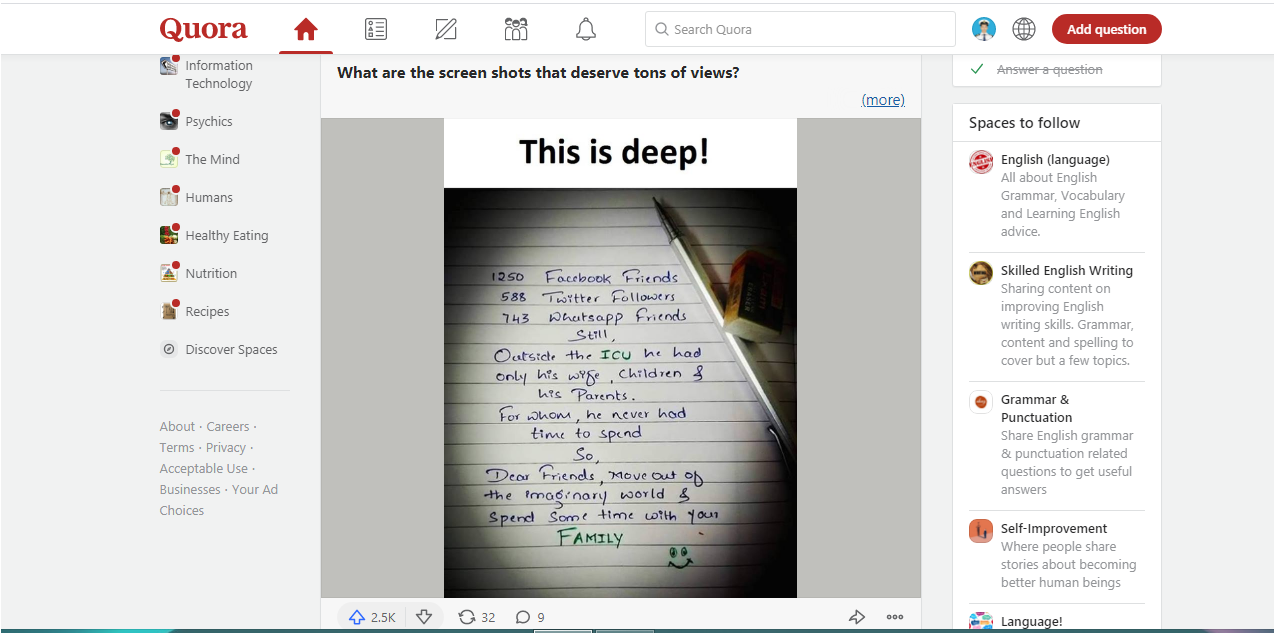 Quora
Search Quora
Add question
Information
Technology
Psychics
The Mind
Humans
Healthy Eating
Nutrition
Recipes
Discover Spaces
About · Careers ·
Terms · Privacy ·
Acceptable Use ·
Businesses · Your Ad
Choices
What are the screen shots that deserve tons of views?
(more)
This is deep!
1250 Facebook Friends
588 Twitter Followers
743 Whatsapp Friends
Still,
Outside the ICU he had
only his wife, Children &
his Parents.
For whom, he never had
time to spend
So,
Dear Friends, Move out of
the imaginary world &
Spend Some time with your
FAMILY
2.5K
32
9
Answer a question
Spaces to follow
English (language)
All about English
Grammar, Vocabulary
and Learning English
advice.
Skilled English Writing
Sharing content on
improving English
writing skills. Grammar,
content and spelling to
cover but a few topics.
Grammar &
Punctuation
Share English grammar
& punctuation related
questions to get useful
answers
Self-Improvement
Where people share
stories about becoming
better human beings
Language!